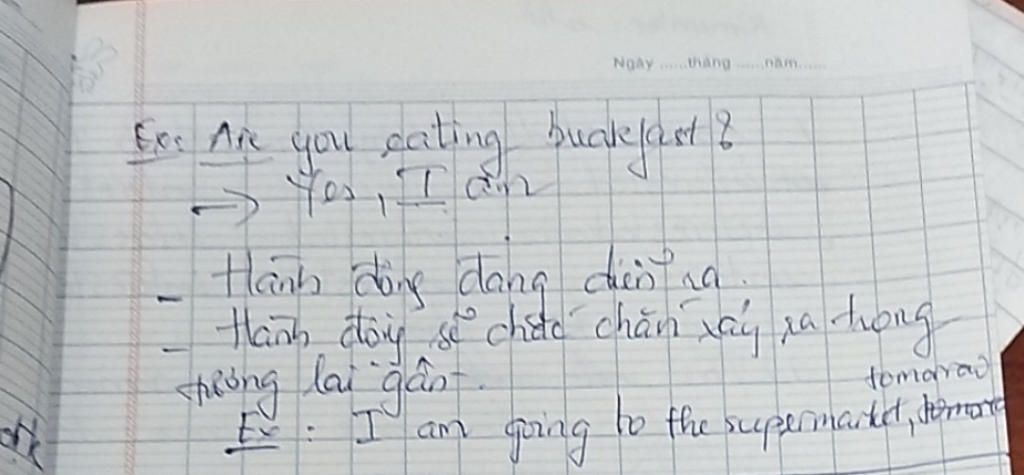 Ngày ......tháng ......năm......
Ex: Are you eating buakefast ?
→ Yes, I am
- Hành động đang diễn ra.
- Hành động sẽ chắc chắn xảy ra trong
tương lai gần.
tomorao
Ex : I am going to the supermarket,